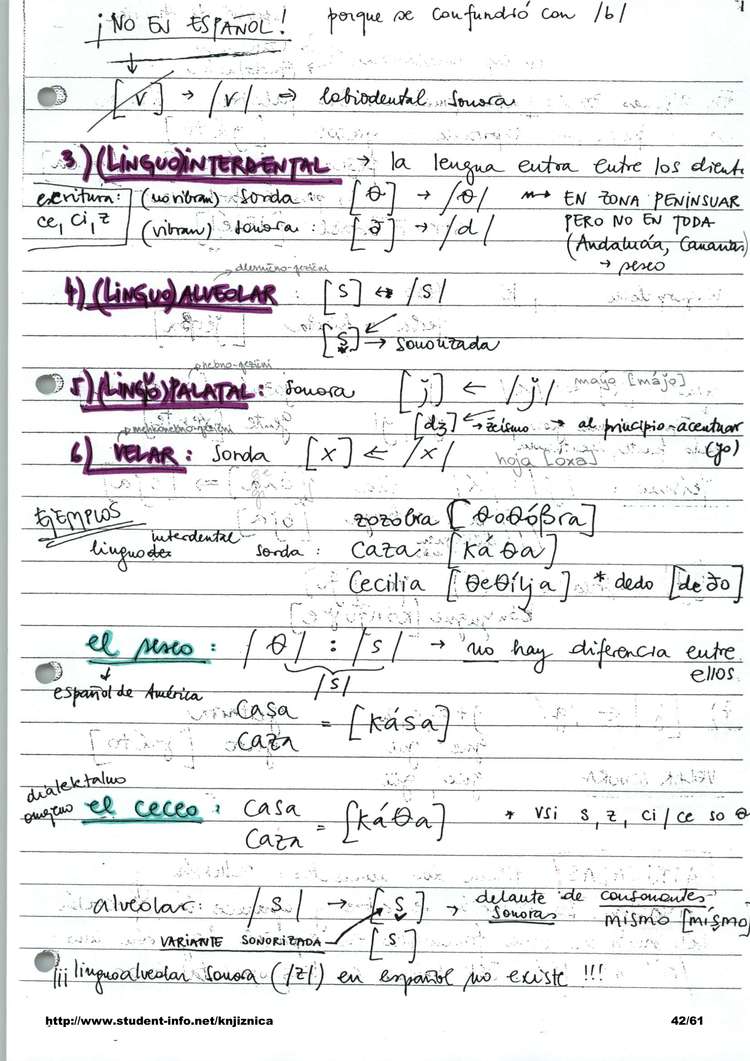 ¡NO EN ESPAÑOL! porque se confundió con /b/ 1
[v] → /v/ ⇒ labiodental sonora
3) (LINGUO)INTERDENTAL → la lengua entra entre los dient
escritura: (no vibran) sorda : [θ] → /θ/ EN ZONA PENINSUAR
ce, ci, z (vibran) sonora : [ð] → /d/ PERO NO EN TODA
(Andalucía, Canarias)
→ seseo
4) (LINGUO)ALVEOLAR : [s] ↔ /s/
[s̬] → sonorizada
5) (LINGUO)PALATAL: sonora [ǰ] ← /ǰ/ mayo [májo]
[dʒ] → žeismo → al principio-acentuar
6) VELAR : sorda [x] ← /x/ hoja [óxa] (yo)
EJEMPLOS zozobra [θoθóβra]
interdental
linguo sorda : caza [káθa]
Cecilia [θeθílja] * dedo [deðo]
el seseo : /θ/ : /s/ → no hay diferencia entre
/s/ ellos
español de América
casa
caza = [kása]
dialektalno
omejeno el ceceo : casa
caza = [káθa] * vsi s, z, ci/ce so θ
alveolar: /s/ → [s̬] → delante de consonantes
sonoras mismo [mís̬mo]
VARIANTE SONORIZADA [s]
¡¡¡ linguoalveolar sonora (/z/) en español no existe !!!
http://www.student-info.net/knjiznica 42/61